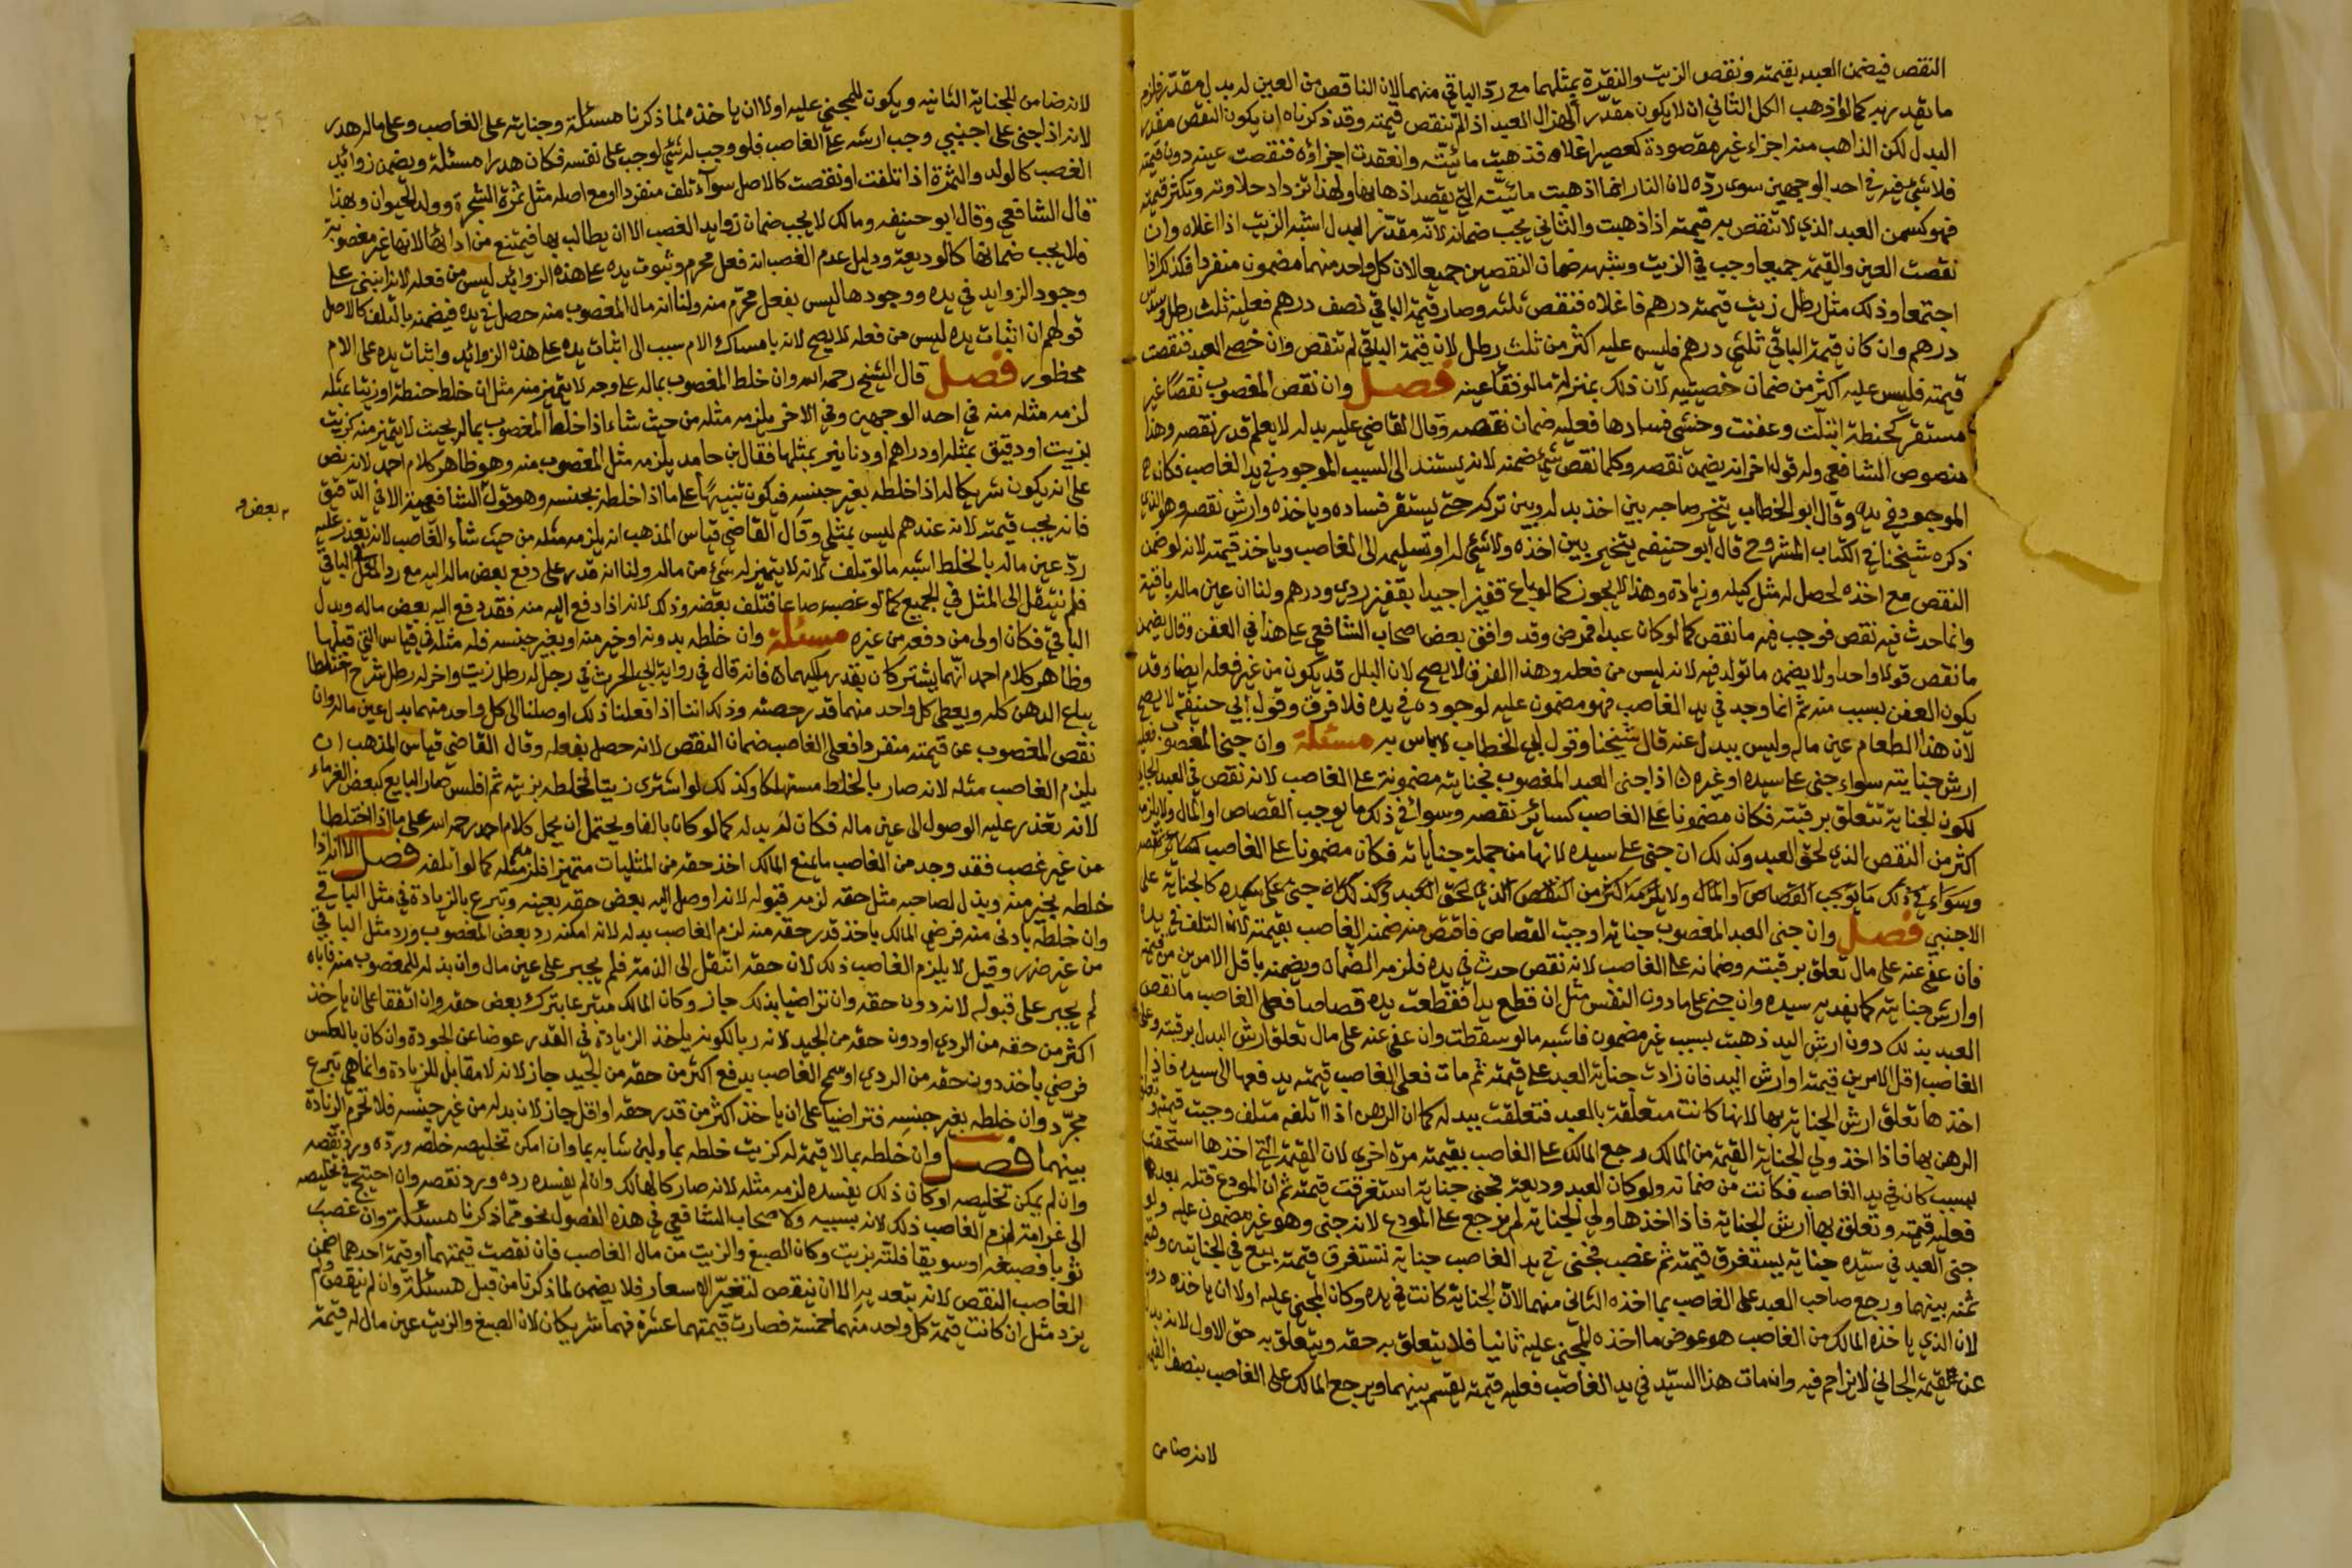 النقص فيضمن العبد بقيمته ونقص الزيت والنقرة بمثلهما مع رد الباقي منهما لان الناقص من العين له بدل مقدر فلزم
ما تقدر به كما لو ذهب الكل الثاني ان لا يكون مقدر الهزال العبد اذا لم تنقص قيمته وقد ذكرناه ان يكون النقص مقدر
البدل لكن الذاهب منه اجزاء غير مقصودة كعصير اغلاه فذهبت مائيته وانعقدت اجزاؤه فنقصت عينه دون قيمته
فلا شيء فيه في احد الوجهين سوى رده لان النار انما اذهبت مائيته التي يقصد اذهابها ولهذا تزداد حلاوته وتكثر قيمته
فهو كسمن العبد الذي لا تنقص به قيمته اذا ذهبت والثاني يجب ضمانه لانه مقدر البدل اشبه الزيت اذا اغلاه وان
نقصت العين والقيمة جميعا وجب في الزيت وشبهه ضمان النقصين جميعا لان كل واحد منهما مضمون منفردا فكذلك اذا
اجتمعا وذلك مثل رطل زيت قيمته درهم فاغلاه فنقص ثلثه وصار قيمة الباقي نصف درهم فعليه ثلث رطل وسدس
درهم وان كان قيمة الباقي ثلثي درهم فليس عليه اكثر من ثلث رطل لان قيمة الباقي لم تنقص وان خصى العبد فنقصت
قيمته فليس عليه اكثر من ضمان خصيتيه لان ذلك بمنزلة ما لو فقأ عينه فصل وان نقص المغصوب نقصا غير
مستقر كحنطة ابتلت وعفنت وخشي فسادها فعليه ضمان نقصه وقال القاضي عليه بدله لا يعلم قدر نقصه وهذا
منصوص الشافعي وله قول اخر انه يضمن نقصه وكلما نقص شيء ضمنه لانه يستند الى السبب الموجود في يد الغاصب فكان كا
الموجود في يده وقال ابو الخطاب يتخير صاحبه بين اخذ بدله وبين تركه حتى يستقر فساده وياخذه وارش نقصه وهو الذي
ذكره شيخنا في الكتاب المشروح قال ابو حنيفه يتخير بين اخذه ولا شيء له او تسليمه الى الغاصب وياخذ قيمته لانه لو ضمن
النقص مع اخذه لحصل له مثل كيله وزيادة وهذا لا يجوز كما لو باع قفيزا جيدا بقفيز ردي ودرهم ولنا ان عين ماله باقية
وانما حدث فيه نقص فوجب فيه ما نقص كما لو كان عبدا فمرض وقد وافق بعض اصحاب الشافعي على هذا في العفن وقال يضمن
ما نقص قولا واحدا ولا يضمن ما تولد فيه لانه ليس من فعله وهذا الفرق لا يصح لان البلل قد يكون من غير فعله ايضا وقد
يكون العفن بسبب منه ثم انما وجد في يد الغاصب فهو مضمون عليه لوجوده في يده فلا فرق وقول ابي حنيفة لا يصح
لان هذا الطعام عين ماله وليس ببدل عنه قال شيخنا وقول ابي الخطاب لا باس به مسئلة وان جنى المغصوب فعليه
ارش جنايته سواء جنى على سيده او غيره اذا جنى العبد المغصوب فجنايته مضمونة على الغاصب لانه نقص في العبد الجاني
لكون الجناية تتعلق برقبته فكان مضمونا على الغاصب كسائر نقصه وسواء في ذلك ما يوجب القصاص او المال ولا يلزمه
اكثر من النقص الذي لحق العبد وكذلك ان جنى على سيده لانها من جملة جناياته فكان مضمونا على الغاصب كسائر نقصه
وسواء في ذلك ما يوجب القصاص او المال ولا يلزمه اكثر من النقص الذي لحق العبد وكذلك ان جنى على سيده كالجناية على
الاجنبي فصل وان جنى العبد المغصوب جناية اوجبت القصاص فاقتص منه ضمنه الغاصب بقيمته لان التلف في يده
فان عفي عنه على مال تعلق برقبته وضمانه على الغاصب لانه نقص حدث في يده فلزمه الضمان ويضمنه باقل الامرين من قيمته
او ارش جنايته كما يفديه سيده وان جنى على ما دون النفس مثل ان قطع يدا فقطعت يده قصاصا فعلى الغاصب ما نقص
العبد بذلك دون ارش اليد ذهبت بسبب غير مضمون فاشبه ما لو سقطت وان عفي عنه على مال تعلق ارش اليد برقبته وعلى
الغاصب اقل الامرين قيمته او ارش اليد فان زادت جناية العبد على قيمته ثم مات فعلى الغاصب قيمته يدفعها الى سيده فاذا
اخذها تعلق ارش الجناية بها لانها كانت متعلقة بالعبد فتعلقت ببدله كما ان الرهن اذا اتلفه متلف وجبت قيمته وتعلق
الرهن بها فاذا اخذ ولي الجناية القيمة من المالك رجع المالك على الغاصب بقيمته مرة اخرى لان القيمة التي اخذها استحقت
بسبب كان في يد الغاصب فكانت من ضمانه ولو كان العبد وديعة فجنى جناية استغرقت قيمته ثم ان المودع قتله بعدها
فعليه قيمته وتعلق بها ارش الجناية فاذا اخذها ولي الجناية لم يرجع على المودع لانه جنى وهو غير مضمون عليه ولو
جنى العبد في يد سيده جناية تستغرق قيمته ثم غصب فجنى في يد الغاصب جناية تستغرق قيمته بيع في الجنايتين وقسم
ثمنه بينهما ورجع صاحب العبد على الغاصب بما اخذه الثاني منهما لان الجناية كانت في يده وكان للمجني عليه اولا ان ياخذه دون
لان الذي ياخذه المالك من الغاصب هو عوض ما اخذه المجني عليه ثانيا فلا يتعلق به حقه ويتعلق به حق الاول لانه بدل
عن القيمة الجاني لا يزاحم فيه وان مات هذا السيد في يد الغاصب فعليه قيمته تقسم بينهما ويرجع المالك على الغاصب بنصف القيمة
لانه ضامن
لانه ضامن الجناية الثانيه ويكون للمجني عليه اولا ان ياخذه لما ذكرنا مسئلة وجنايته على الغاصب وعلى ماله هدر
لانه اذا جنى على اجنبي وجب ارشه على الغاصب فلو وجب له شيء لوجب على نفسه فكان هدرا مسئلة ويضمن زوائد
الغصب كالولد والثمرة اذا تلفت او نقصت كالاصل سواء تلف منفردا او مع اصله مثل ثمرة الشجرة وولد الحيوان وبهذا
قال الشافعي وقال ابو حنيفه ومالك لا يجب ضمان زوايد الغصب الا ان يطالب بها فيمتنع من ادائها لانها غير مغصوبة
فلا يجب ضمانها كالوديعة ودليل عدم الغصب انه فعل محرم وثبوت يده على هذه الزوائد ليس من فعله لانه انبنى على
وجود الزوايد في يده ووجودها ليس بفعل محرم منه ولنا انه مال المغصوب منه حصل في يده فيضمنه بالتلف كالاصل
قولهم ان اثبات يده ليس من فعله لا يصح لانه بامساك الام سبب الى اثبات يده على هذه الزوائد واثبات يده على الام
محظور فصل قال الشيخ رحمه الله وان خلط المغصوب بماله على وجه لا يتميز منه مثل ان خلط حنطة او زيتا بمثله
لزمه مثله منه في احد الوجهين وفي الاخر يلزمه مثله من حيث شاء اذا خلط المغصوب بماله بحيث لا يتميز منه كزيت
بزيت او دقيق بمثله او دراهم او دنانير بمثلها فقال ابن حامد يلزمه مثل المغصوب منه وهو ظاهر كلام احمد لانه نص
على انه يكون شريكا له اذا خلطه بغير جنسه فيكون تنبيها على ما اذا خلطه بجنسه وهو قول الشافعي الا في الدقيق
بعض
فانه يجب قيمته لانه عندهم ليس بمثلي وقال القاضي قياس المذهب انه يلزمه مثله من حيث شاء الغاصب لانه تعذر عليه
رد عين ماله بالخلط اشبه ما لو تلف لانه لا يتميز له شيء من ماله ولنا انه قدر على دفع بعض ماله اليه مع رد المثل في الباقي
فلم ينتقل الى المثل في الجميع كما لو غصب صاعا فتلف بعضه وذلك لانه اذا دفع اليه منه فقد دفع اليه بعض ماله وبدل
الباقي فكان اولى من دفعه من غيره مسئلة وان خلطه بدونه او خير منه او بغير جنسه فله مثله في قياس التي قبلها
وظاهر كلام احمد انهما يشتركان بقدر ملكيهما فانه قال في رواية ابي الحرث في رجل له رطل زيت واخر له رطل شيرج اختلطا
يباع الدهن كله ويعطى كل واحد منهما قدر حصته وذلك اننا اذا فعلنا ذلك اوصلنا الى كل واحد منهما بدل عين ماله وان
نقص المغصوب عن قيمته منفردا فعلى الغاصب ضمان النقص لانه حصل بفعله وقال القاضي قياس المذهب ان
يلزم الغاصب مثله لانه صار بالخلط مستهلكا وكذلك لو اشترى زيتا فخلطه بزيته ثم افلس صار البايع كبعض الغرماء
لانه تعذر عليه الوصول الى عين ماله فكان له بدله كما لو كان تالفا ويحتمل ان يحمل كلام احمد رحمه الله على ما اذا اختلطا
من غير غصب فقد وجد من الغاصب ما يمنع المالك اخذ حقه من المثليات متميزا فلزمه مثله كما لو اتلفه فصل الا انه اذا
خلطه بخير منه وبذل لصاحبه مثل حقه لزمه قبوله لانه اوصل اليه بعض حقه بعينه وتبرع بالزيادة في مثل الباقي
وان خلطه بادنى منه فرضي المالك ياخذ قدر حقه منه لزم الغاصب بدله لانه امكنه رد بعض المغصوب ورد مثل الباقي
من غير ضرر وقيل لا يلزم الغاصب ذلك لان حقه انتقل الى الذمة فلم يجبر على عين مال وان بذله للمغصوب منه فاباه
لم يجبر على قبوله لانه دون حقه وان تراضيا بذلك جاز وكان المالك متبرعا بترك بعض حقه وان اتفقا على ان ياخذ
اكثر من حقه من الردي او دون حقه من الجيد لانه ربا لكونه ياخذ الزيادة في القدر عوضا عن الجودة وان كان بالعكس
فرضي ياخذ دون حقه من الردي او سمح الغاصب بدفع اكثر من حقه من الجيد جاز لانه لا مقابل للزيادة وانما هي تبرع
مجرد وان خلطه بغير جنسه فتراضيا على ان ياخذ اكثر من قدر حقه او اقل جاز لان بدله من غير جنسه فلا تحرم الزيادة
بينهما فصل وان خلطه بما لا قيمة له كزيت خلطه بماء ولبن شابه بماء وان امكن تخليصه خلصه ورده ورد نقصه
وان لم يمكن تخليصه او كان ذلك يفسده لزمه مثله لانه صار كالهالك وان لم يفسده رده ورد نقصه وان احتيج في تخليصه
الى غرامة لزم الغاصب ذلك لانه بسببه ولاصحاب الشافعي في هذه الفصول نحو مما ذكرنا مسئلة وان غصب
ثوبا فصبغه او سويقا فلته بزيت وكان الصبغ والزيت من مال الغاصب فان نقصت قيمتهما او قيمة احدهما ضمن
الغاصب النقص لانه بتعديه الا ان ينقص لتغير الاسعار فلا يضمن لما ذكرنا من قبل مسئلة وان لم ينقص ولم
يزد مثل ان كانت قيمة كل واحد منهما خمسة فصارت قيمتهما عشرة فهما شريكان لان الصبغ والزيت عين مال له قيمة